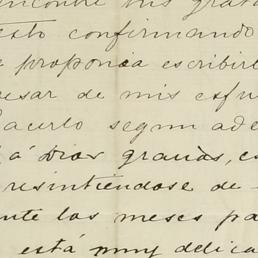 encontré mis grat
esto confirmando
proponia escribirl
pesar de mis esfu
hacerlo segun ade
á Dios gracias, es
resintiéndose de
nte los meses pa
está muy delica